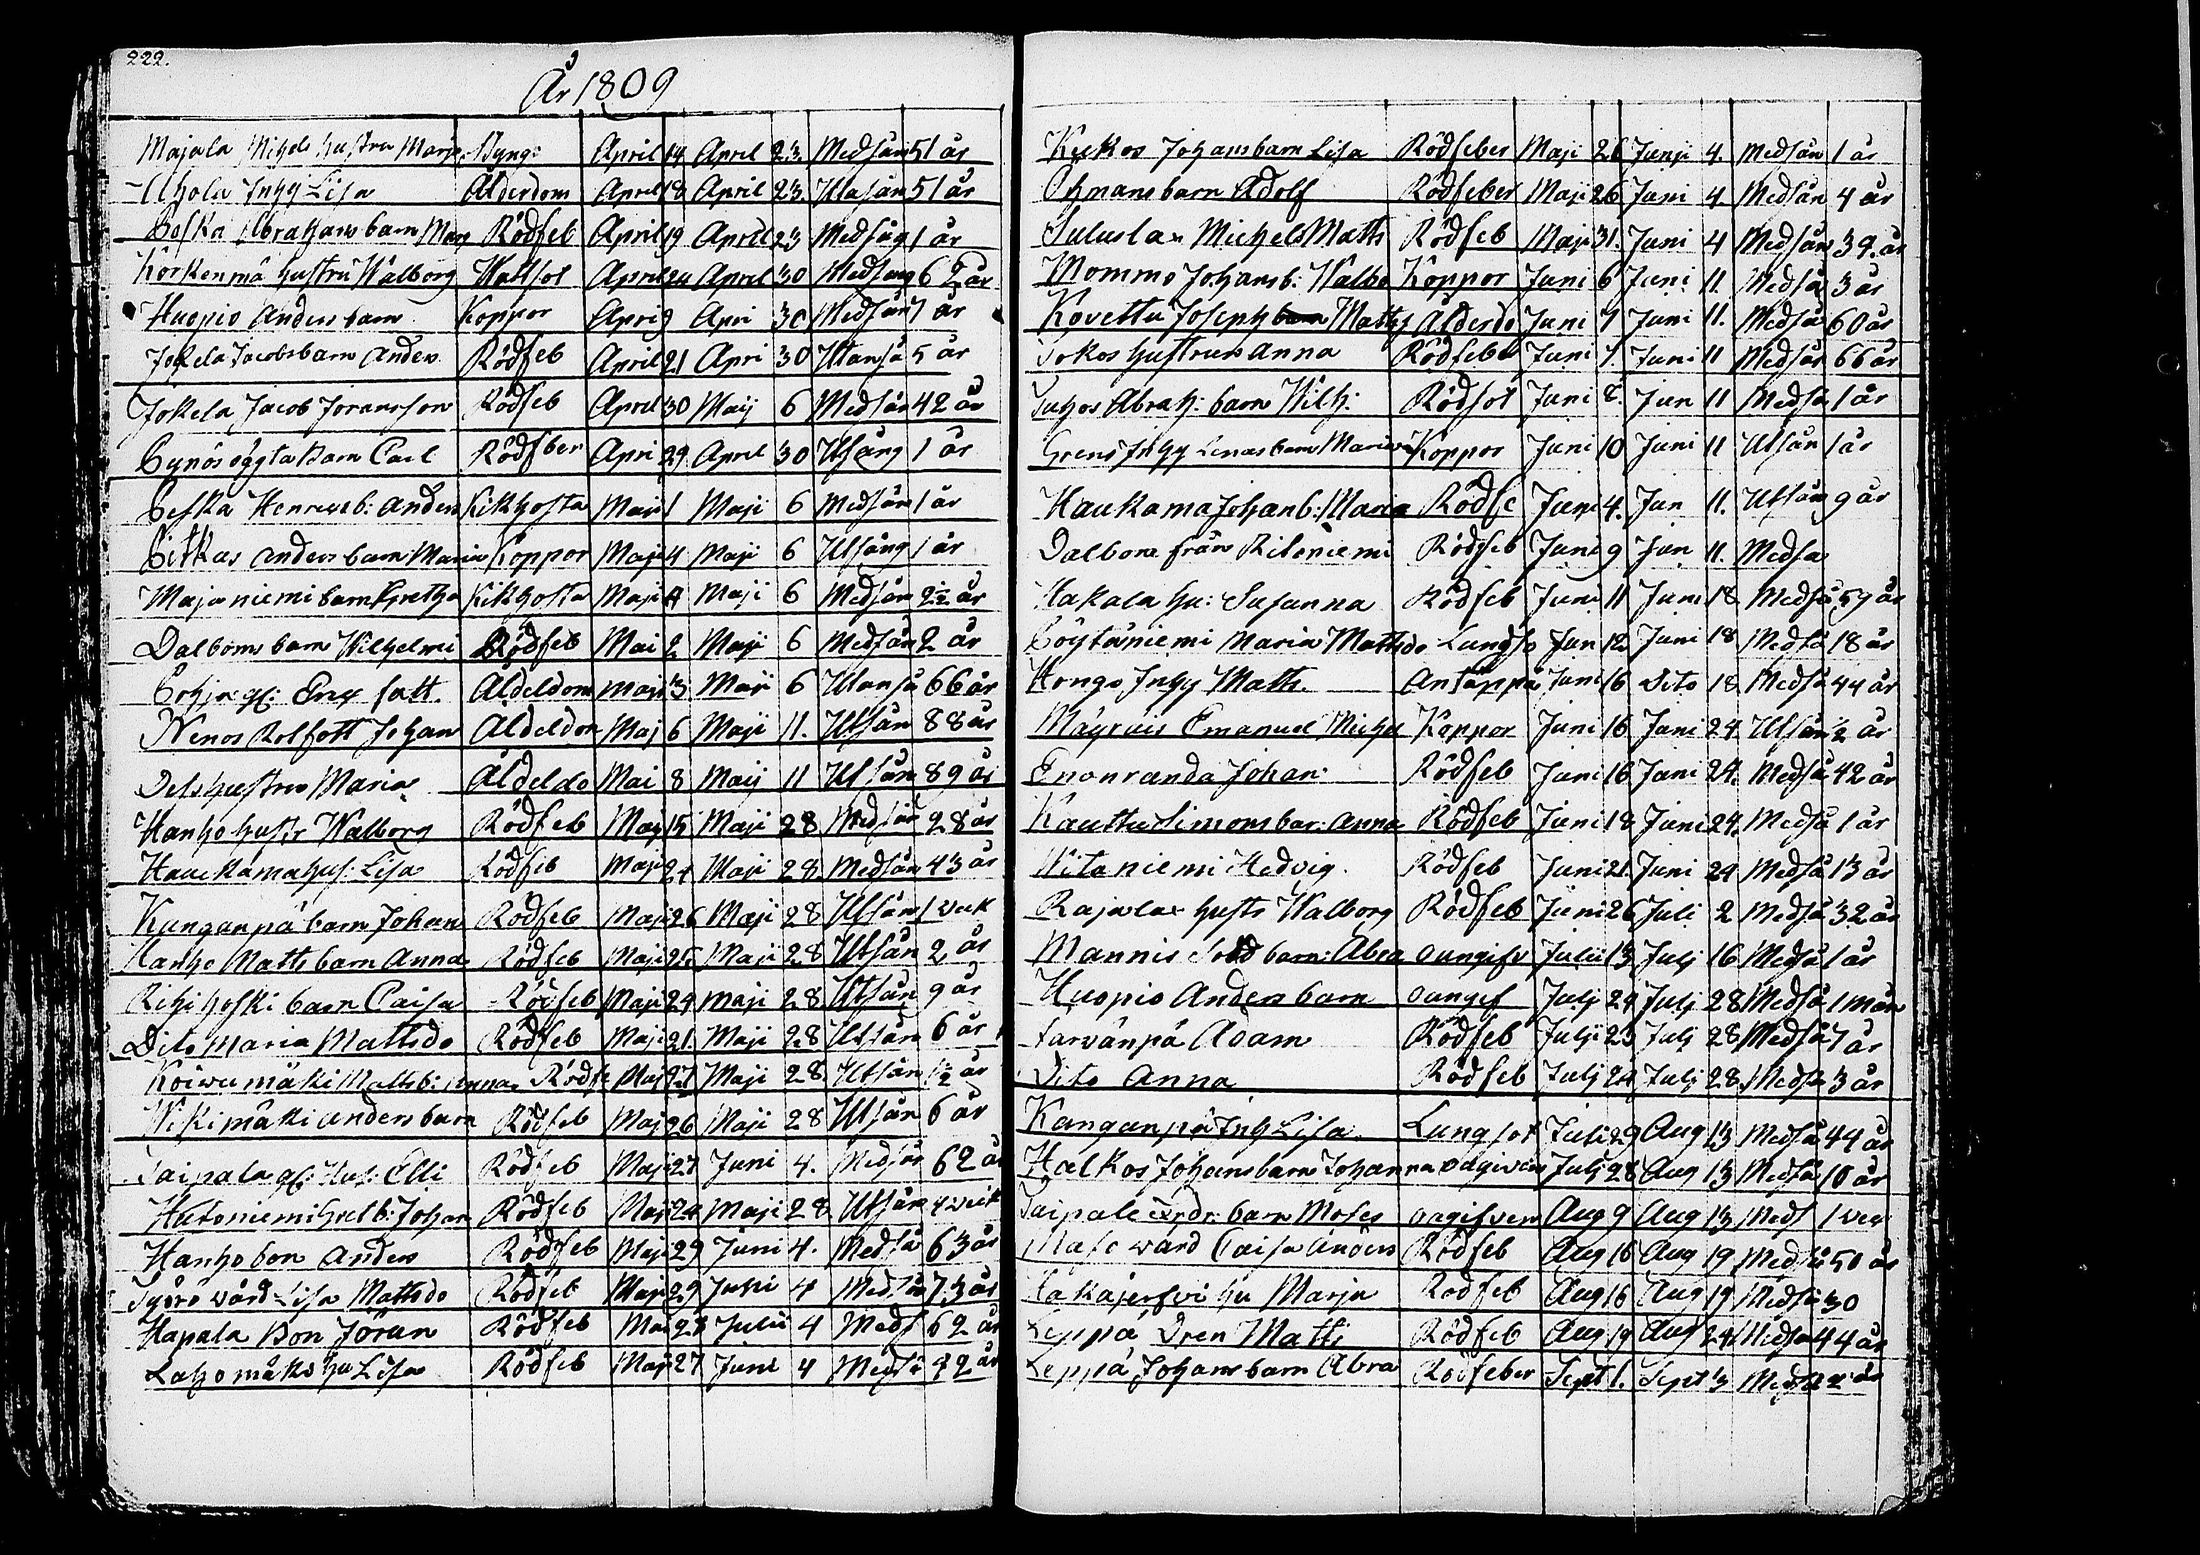 222.
År 1809
Majala Michels hustru Marja April 14 April 23 Medsån 51 år
Ahola Ingj Lisa Ålderdom April 18 April 23. Utasån 51 år
Abrahams barn Rödfeb April 19 April 23 Medsåg 1 år
Korkenmä hustru Walborg Wattsot April 24 April 30 Medsång 62 år
Huopio Anders barn Koppor Apri 9 Apri 30 Medsån 7 år
Jokela Jacobsbarn Anders Rödfeb April 21 Apri 30 Utanså 5 år
Jokela Jacob Joransson Rödfeb April 30 Maij 6 Medsån 42 år
barn Carl Rödfber Apri 29 April 30 Utsång 1 år
Henricsb: Anders Kikhosta Maji 1 Maji 6 Medsån 1 år
Anders barn Maria Koppor Maji 4 Maji 6 Utsång 1 år
Majaniemi barn Gretha Kikhosta Maji 4 Maji 6 Medsån 2½ år
Dalboms barn Wilhelmi Rödfeb Mai 2 Maji 6 Medsån 2 år
Erex fatt. Aldeldom Maji 3 Maji 6 Utanså 66 år
Nenos Rolfatt Johan Aldeldon Maj 6 Maji 11. Utsån 88 år
Dels hustru Maria Åldeldo Mai 8 Maij 11 Utsån 89 år
Hanho hustr Walborg Rödfeb Maj 15 Maji 28 Medsån 28 år
Hauckama hus: Lisa Rödfeb Maji 24 Maji 28 Medsån 43 år
Kanganpä barn Johan Rödfeb Maji 26 Maji 28 Utsån 1 veck
Hanho Matts barn Anna Rödfeb Maji 25 Maji 28 Utsån 2 år
barn Caisa Rödfeb Maji 24 Maji 28 Utsån 9 år
Dito Maria Mattsdo Rödfeb Maji 21 Maji 28 Utsån 6 år
Koiwumäki Mattsb: Anna Rödfe Maj 27 Maji 28 Utsån 1½ år
Wikimäki Anders barn Rödfeb Maj 26 Maji 28 Utsån 6 år
Taipala gl: Hus: Elli Rödfeb Maji 27 Juni 4. Medsån 62 år
Gretb: Johan Rödfeb Maji 24 Maji 28 Utsån 4 veck
Hanho bon Anders Rödfeb Maji 29 Juni 4. Medså 63 år
Lisa Mattsdo Rödfeb Maji 29 Juni 4 Medsån 73 år
Hapala Bon Jöran Rödfeb Mai 27 Juni 4 Meds 62 år
Lahomäki hu Lisa Rödfeb Maji 27 Juni 4 Medså 42 år
Kukos Johans barn Lisa Rödfeber Maji 26 Junji 4. Medsån 1 år
Öhmans barn Adolf Rödfeber Maji 26 Juni 4 Medsån 4 år
Michels Matts Rödfeb Maji 31. Juni 4 Medsån 39 år
Mommo Johansb: Walbo Koppor Juni 6 Juni 11. Medså 3 år
Kovettu Joseph Matts Ålderdo Juni 7 Juni 11. Medså 60 år
Jokos hustrun Anna Rödfeber Juni 7. Juni 11 Medsån 66 år
Abrah: barn Wilh: Rödsot Juni 8. Jun 11 Medså 1 år
Grens Ingj Lenas barn Maria Koppor Juni 10 Juni 11 Utsån 1 år
Haukama Johanb: Maria Rödfe Juni 4. Jun 11. Utsån 9 år
Dalbom från Ritoniemi Rödfeb Juni 9 Jun 11. Medså
Hakala hu: Susanna Rödfeb Juni 11 Juni 18 Medså 59 år
Maria Mattsdo Lungso Jun 12 Juni 18 Medså 18 år
Hongo Ingj Matts. Juni 16 Dito 18 Medså 44 år
Emanuel Michel Koppor Juni 16 Juni 24. Utsån ½ år
Enonranda Johan Rödfeb Juni 16 Juni 24. Medså 42 år
Kauttu Simons bar: Anna Rödfeb Juni 18 Juni 24. Medså 1 år
Witaniemi Hedvig Rödfeb Juni 21. Juni 24 Medså 13 år
Rajala hustr Walborg Rödfeb Juni 26 Juli 2 Medså 32 år
Mannis barn: Abra oangifv Julii 13 Julj 16 Medså 1 år
Huopio Anders barn oangef Julj 24 Julj 28 Medså 1 mån
Tarvänpä Adam Rödfeb Julji 23 Julj 28 Medså 7 år
Dito Anna Rödfeb Julj 24 Julj 28 Medså 3 år
Kanganpä Ingj Lisa Lungsot Juli 29 Aug 13 Medså 44 år
Halkos Johans barn Johanna oagiven Julj 28 Aug 13 Medså 10 år
Taipale barn Moses oagifven Aug 9 Aug 13 Meds 1 vec
Caisa Anders Rödfeb Aug 16 Aug 19 Medså 50 år
hu Marja Rodfeb Aug 16 Aug 19 Medså 30
Leppä Dren Matts Rödfeb Aug 19 Aug 24 Medså 44 år
Leppä Johans barn Abra Rodfeber Sept 1. Sept 3 Medså 2 år